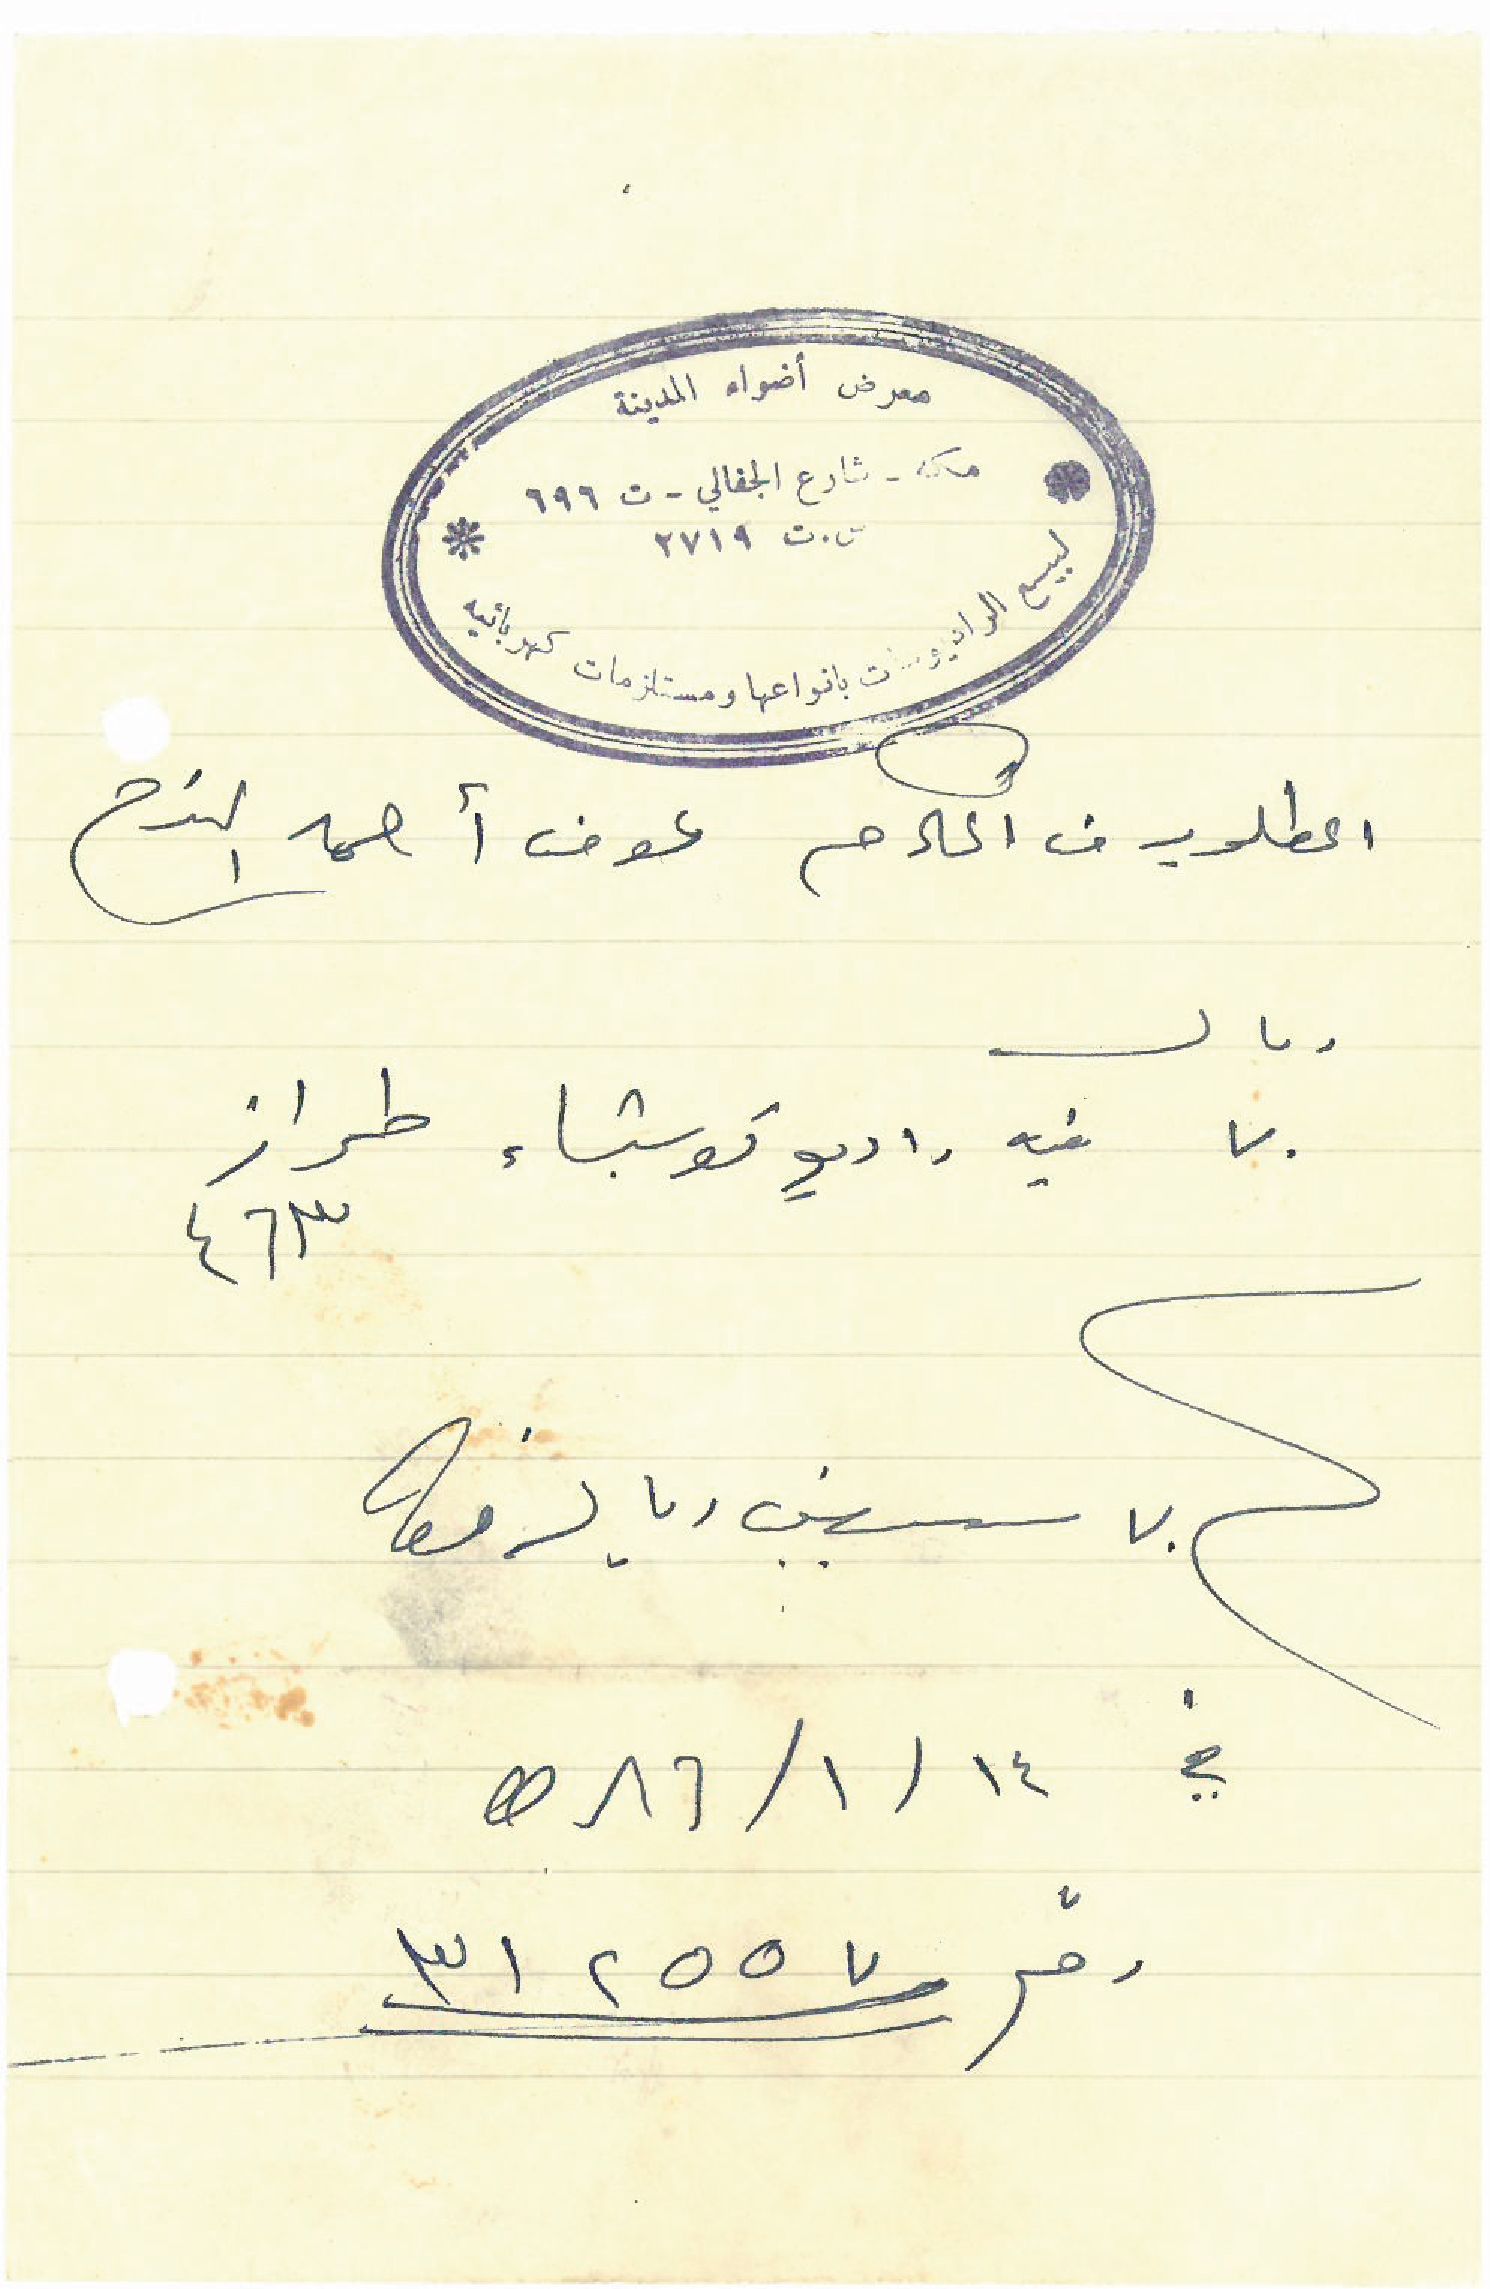 معرض أضواء المدينة
مكة - شارع الجفالي - ت ٦٩٦
س.ت ٢٧١٩
لبيع الراديوهات بانواعها ومستلزمات كهربائيه
المطلوب من المكرم عوض أحمد
ريال
٧٠ قيمة راديو توشبا طراز
٤٦٣
٧٠ سبعين ريال فقط
في ١٤/١/٨٦ هـ
رقم ٣١٢٥٥٧